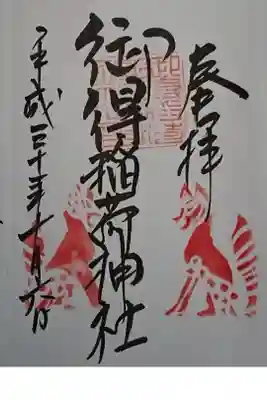 奉拝
御得稲荷神社
平成三十年十月六日